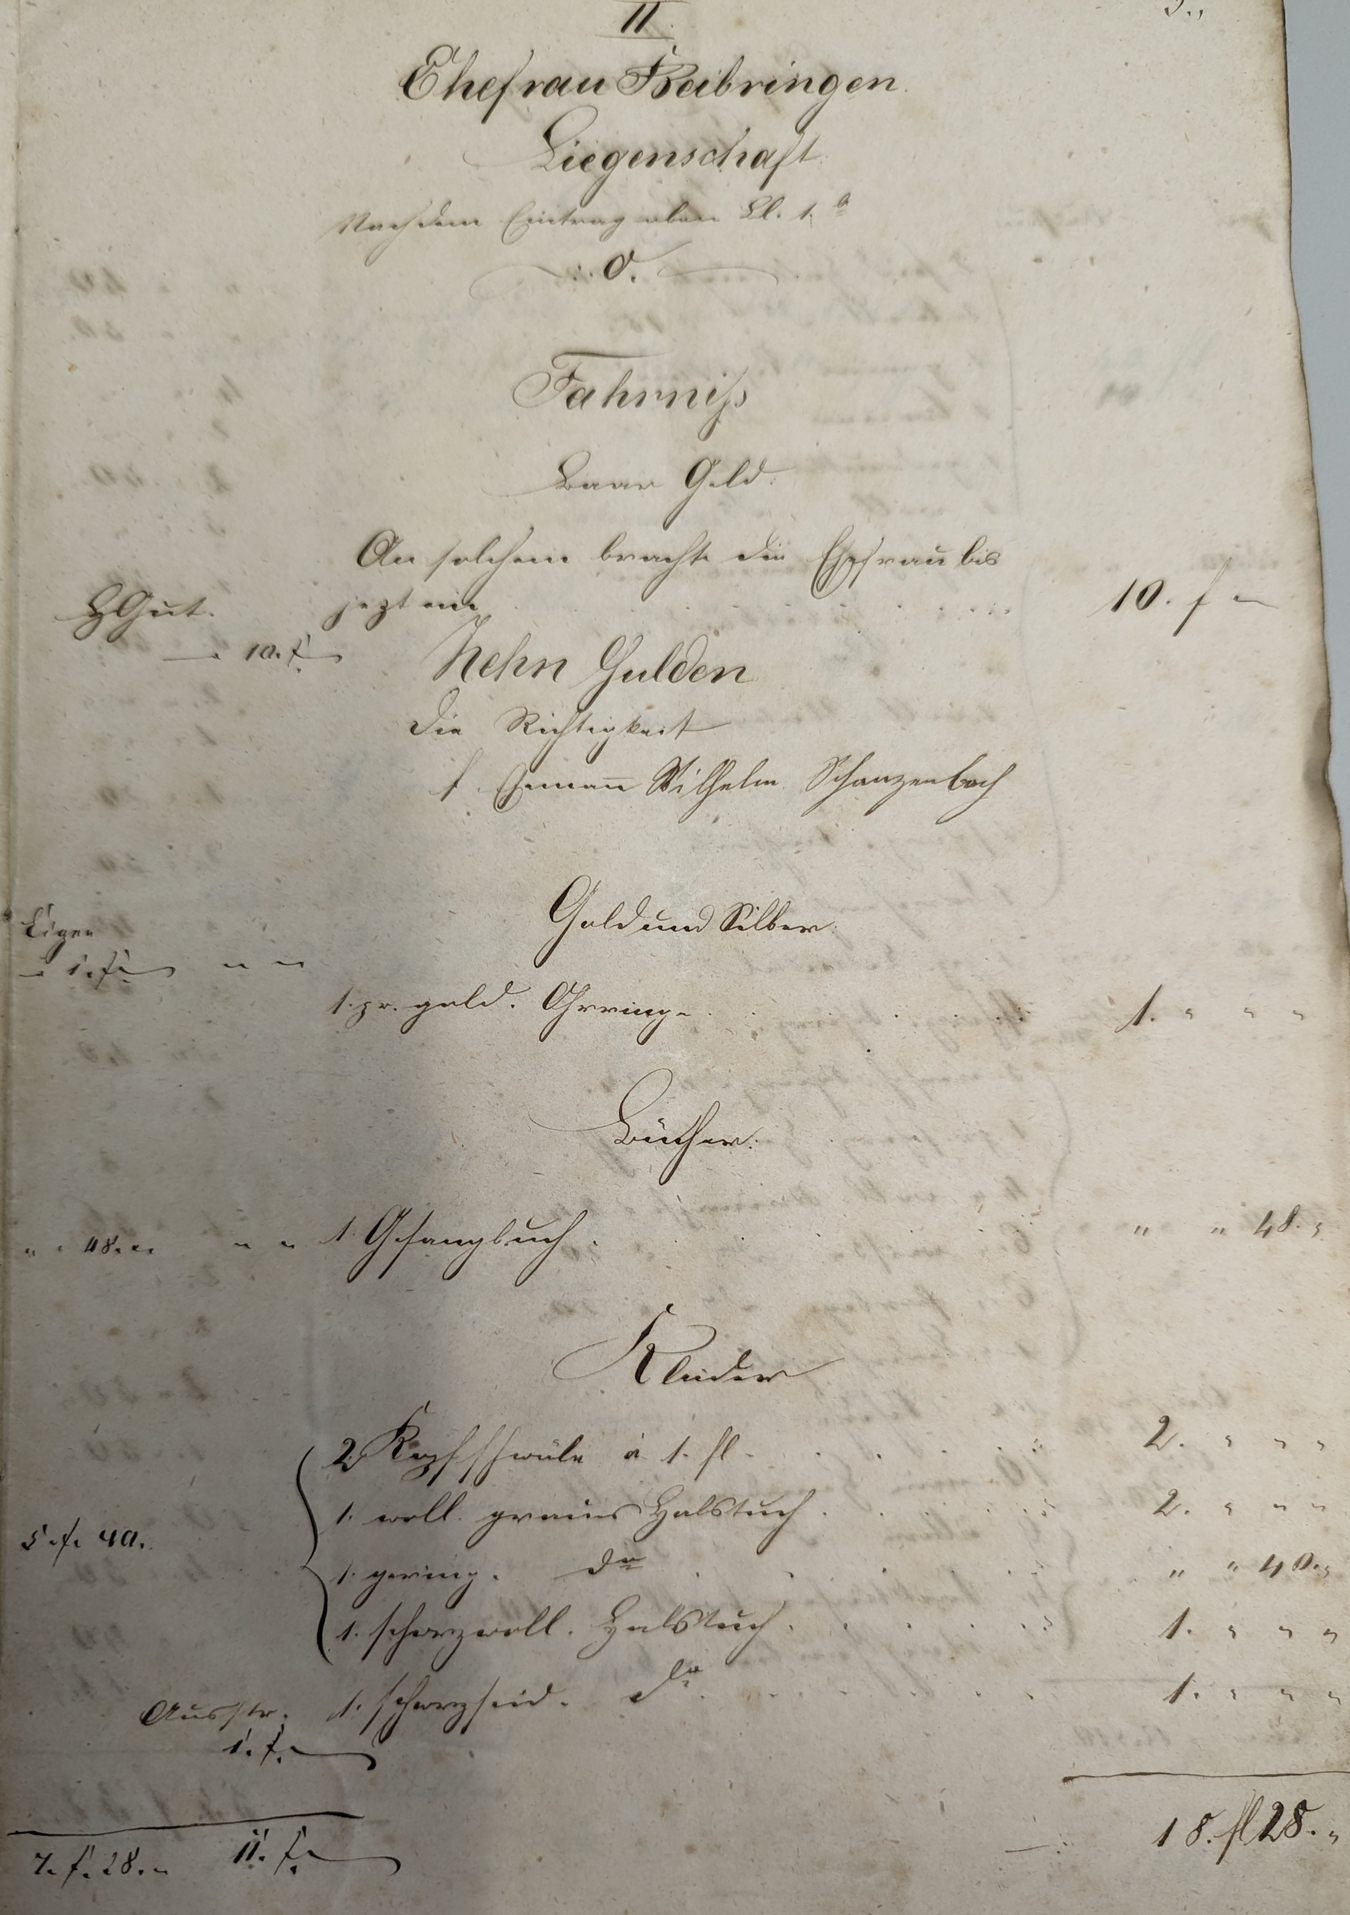 II.
Ehefrau Beibringen.
Liegenschaft
Nach dem Eintrag oben Bl. 1. b
.. 0. ..
Fahrniß
Baar Geld.
An solchem brachte die Ehefrau bis
jezt ein . . . . 10. f –
HGut.
– 10. f. –
Zehn Gulden
Die Richtigkeit
t. Ehemann Wilhelm Schanzenbach
Gold und Silber.
Eigen
– 1. f. – " "
1. pr. gold. Ohrringe . . . . 1. " " "
Bücher.
" . 48. " " " 1. Gesangbuch . . . . " " 48. "
Kleider
2. Kopfshwäle à 1. fl. . . . . 2. " " "
1. woll. graues Halstuch . . . . 2. " " "
5. f. 40.
1. gering. do . . . . " " 40. "
1. schwrzwoll. Halstuch . . . . 1. " " "
Ausstr. 1. schwrzseid. do. . . . . 1. " " "
1. f. –
7. f. 28. " 11. f. – 18. fl 28. "